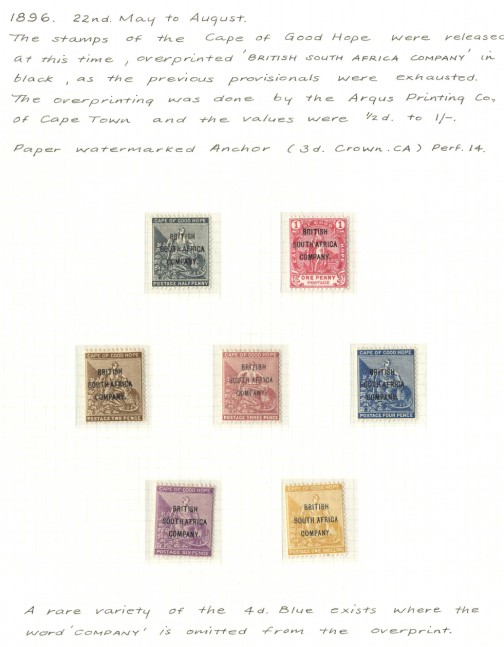 1896. 22nd. May to August.
The stamps of the Cape of Good Hope were released
at this time, overprinted 'BRITISH SOUTH AFRICA COMPANY' in
black, as the previous provisionals were exhausted.
The overprinting was done by the Argus Printing Co,
of Cape Town and the values were ½d. to 1/-.
Paper watermarked Anchor (3d. Crown.CA) Perf. 14.
CAPE OF GOOD HOPE
BRITISH
SOUTH AFRICA
COMPANY.
POSTAGE HALF PENNY
1 1
BRITISH
SOUTH AFRICA
COMPANY.
ONE PENNY
POSTAGE
CAPE OF GOOD HOPE
BRITISH
SOUTH AFRICA
COMPANY.
POSTAGE TWO PENCE
CAPE OF GOOD HOPE
BRITISH
SOUTH AFRICA
COMPANY.
POSTAGE THREE PENCE
CAPE OF GOOD HOPE
BRITISH
SOUTH AFRICA
COMPANY.
POSTAGE FOUR PENCE
CAPE OF GOOD HOPE
BRITISH
SOUTH AFRICA
COMPANY.
POSTAGE SIX PENCE
CAPE OF GOOD HOPE
BRITISH
SOUTH AFRICA
COMPANY.
POSTAGE ONE SHILLING
A rare variety of the 4d. Blue exists where the
word 'COMPANY' is omitted from the overprint.